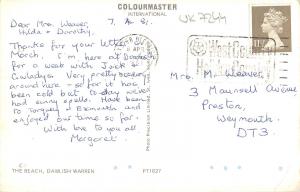 COLOURMASTER
INTERNATIONAL
UK7244
Dear Mrs. Weaver,
Hilda & Dorothy,
7. A. 81.
Thanks for your letter
March, I'm here at Dawlish
for a week with Jack &
Gwladys. Very pretty
around here - so far it has
been cold but to-day we've
had sunny spells. Have been
to Torquay & Exmouth and
enjoyed our time so far.
With love to you all
Margaret.
Mrs. M. Weaver,
3 Maunsell Avenue
Preston,
Weymouth.
DT3.
Photo Precision Limited
THE BEACH, DAWLISH WARREN
PT1627